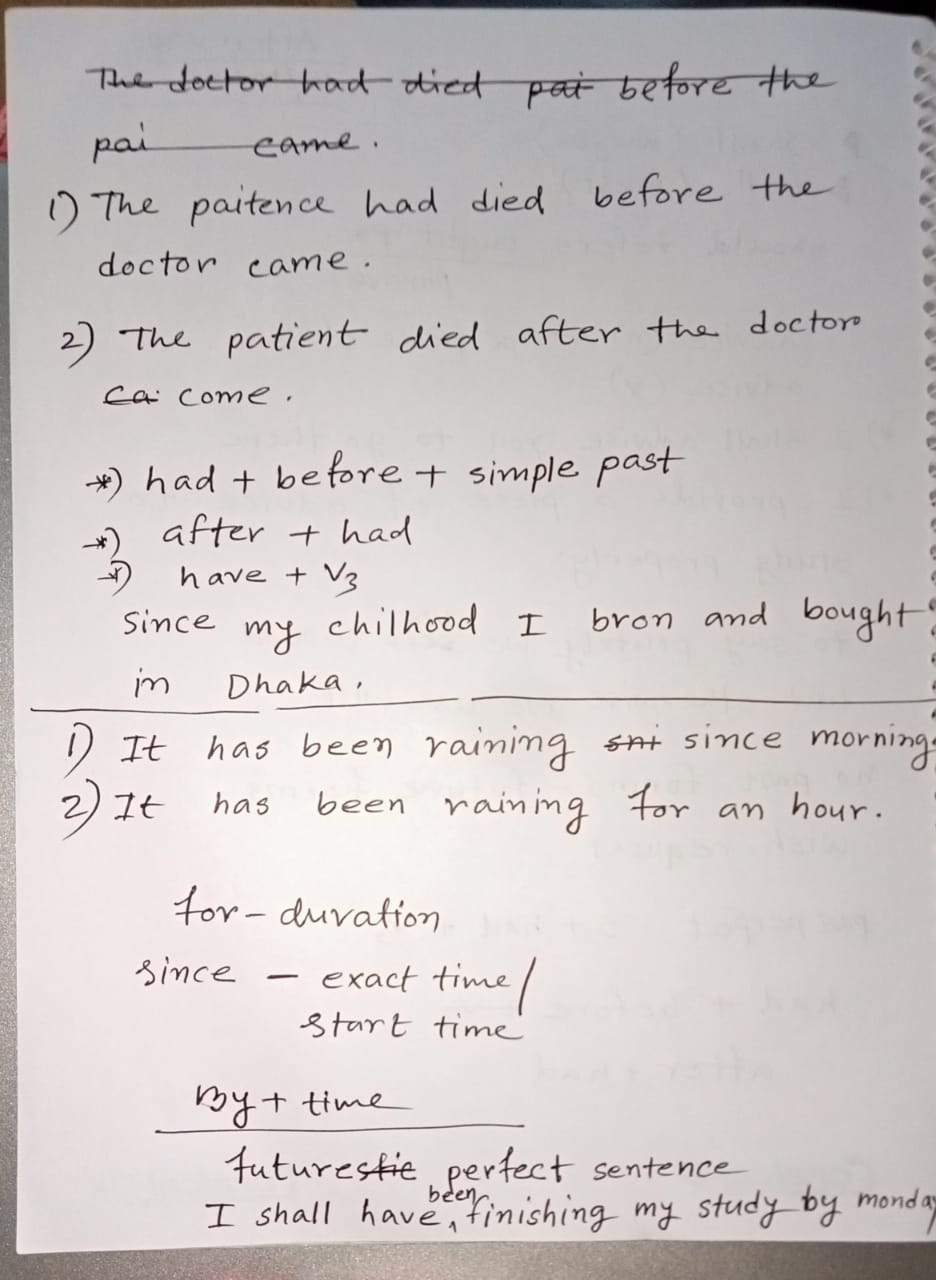 The doctor had died pat before the
pai came.
1) The paitence had died before the
doctor came.
2) The patient died after the doctor
ca come.
*) had + before + simple past
*) after + had
*) have + V3
Since my chilhood I bron and bought
in Dhaka.
1) It has been raining sni since morning.
2) It has been raining for an hour.
for - duration
since - exact time/
start time
By + time
futurestic perfect sentence
been
I shall have, finishing my study by monday